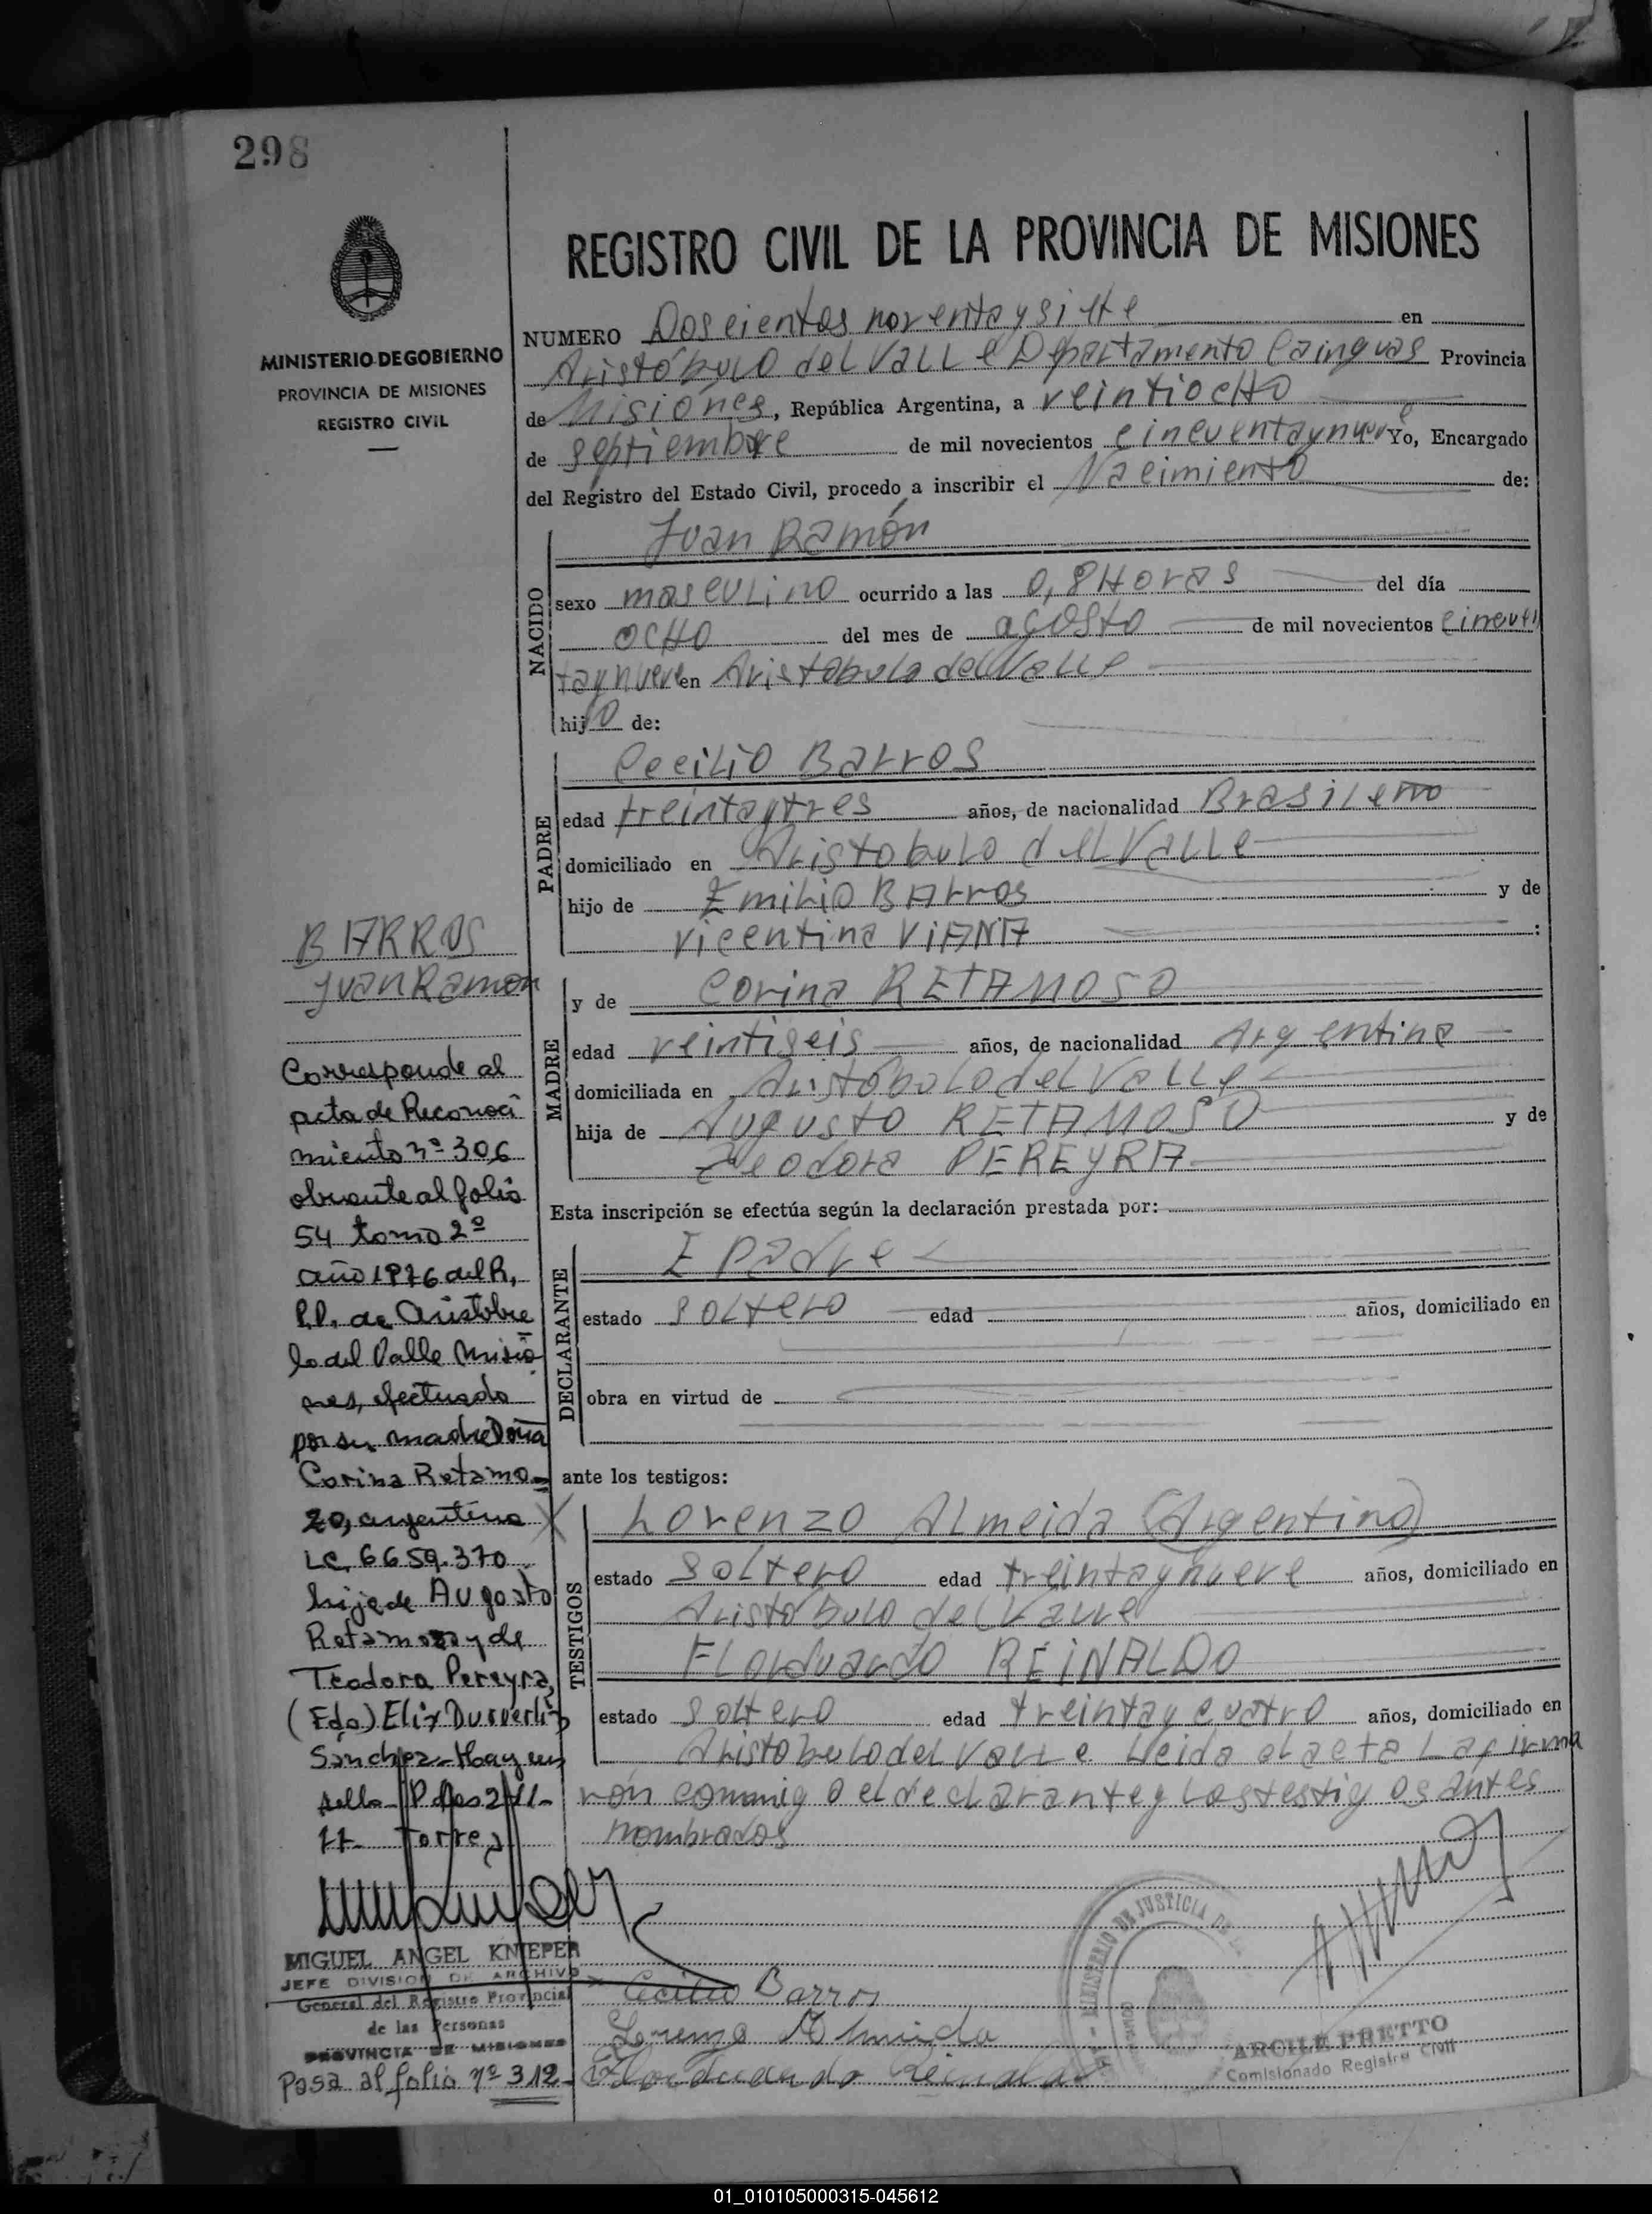 298
MINISTERIO DE GOBIERNO
PROVINCIA DE MISIONES
REGISTRO CIVIL
REGISTRO CIVIL DE LA PROVINCIA DE MISIONES
NUMERO Doscientos noventaysiette en
Aristóbulo del Valle Departamento Cainguas Provincia
de Misiones, República Argentina, a veintiocho
de septiembre de mil novecientos cincuentaynueve Yo, Encargado
del Registro del Estado Civil, procedo a inscribir el Nacimiento de:
NACIDO
Juan Ramón
sexo masculino ocurrido a las 0,8 Horas del día
ocho del mes de agosto de mil novecientos cincuen
taynueve en Aristobulo del Valle
hijo de:
PADRE
Cecilio Barros
edad treintaytres años, de nacionalidad Brasilero
domiciliado en Aristobulo del Valle
hijo de Emilio BArros y de
Vicentina ViANA :
MADRE
y de Corina RETAMOSO
edad veintiseis años, de nacionalidad Argentina
domiciliada en Aristóbulo del Valle
hija de Augusto RETAMOSO y de
Teodora PEREYRA
Esta inscripción se efectúa según la declaración prestada por:
DECLARANTE
E Padre
estado soltero edad años, domiciliado en
obra en virtud de
ante los testigos:
TESTIGOS
Lorenzo Almeida (Argentino)
estado soltero edad treintaynueve años, domiciliado en
Aristobulo del Valle
Florduardo REiNALDO
estado soltero edad treintaycuatro años, domiciliado en
Aristobulo del Valle Leida el acta La firma
rón conmigo el declarante y Los testigos antes
nombrados
BARROS
Juan Ramon
Corresponde al
acta de Reconoci
miento nº 306
obrante al folio
54 tomo 2º
año 1976 del R,
P.P. de Aristobu
lo del Valle Misio
nes, efectuado
por su madre Doña
Corina Retamo
zo, argentina
LC, 6659.370
hija de Augosto
Retamozo y de
Teodora Pereyra,
(Fdo) Elix
Sánchez - Hay un
sello
Torres
MIGUEL ANGEL KNIEPER
JEFE DIVISION DE ARCHIVO
General del Registro Provincial
de las Personas
PROVINCIA DE MISIONES
Pasa al folio nº 312
Cecilio Barros
Lorenzo Almeida
Florduardo Reinaldo
MINISTERIO DE JUSTICIA DE
ARCILE PRETTO
Comisionado Registro Civil
01_010105000315-045612